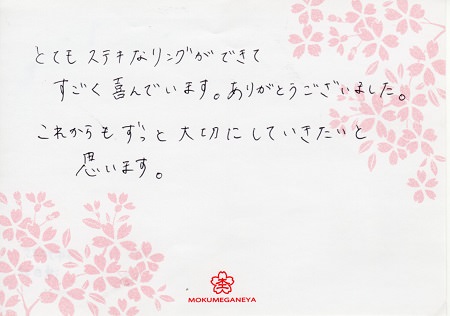 とてもステキなリングができて
すごく喜んでいます。ありがとうございました。
これからもずっと大切にしていきたいと
思います。
杢
MOKUMEGANEYA